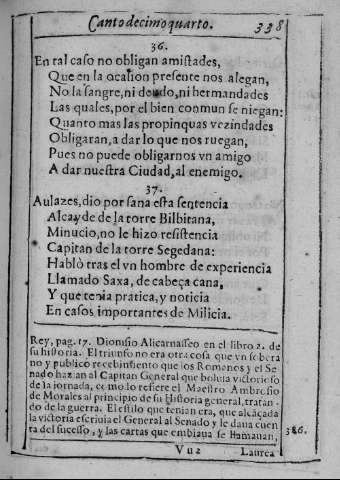 Canto decimoquarto. 338
36.
En tal caso no obligan amistades,
Que en la ocasion presente nos alegan,
No la sangre, ni deudo, ni hermandades
Las quales, por el bien conmun se niegan:
Quanto mas las propinquas vezindades
Obligaran, a dar lo que nos ruegan,
Pues no puede obligarnos vn amigo
A dar nuestra Ciudad, al enemigo.
37.
Aulazes, dio por sana esta sentencia
Alcayde de la torre Bilbitana,
Minucio, no le hizo resistencia
Capitan de la torre Segedana:
Hablò tras el vn hombre de experiencia
Llamado Saxa, de cabeça cana,
Y que tenia pratica, y noticia
En casos importantes de Milicia.
Rey, pag. 17. Dionisio Alicarnasseo en el libro 2. de
su historia. El triunfo no era otra cosa que vn sobera
no y publico recebimiento que los Romanos y el Se
nado hazian al Capitan General que boluia victorioso
de la jornada, como lo refiere el Maestro Ambrosio
de Morales al principio de su Historia general, tratan-
do de la guerra. El estilo que tenian era, que alcãçada
la victoria escriuia el General al Senado y le daua cuen
ta del sucesso, y las cartas que embiaua se llamauan, 386.
Vu2 Laurea